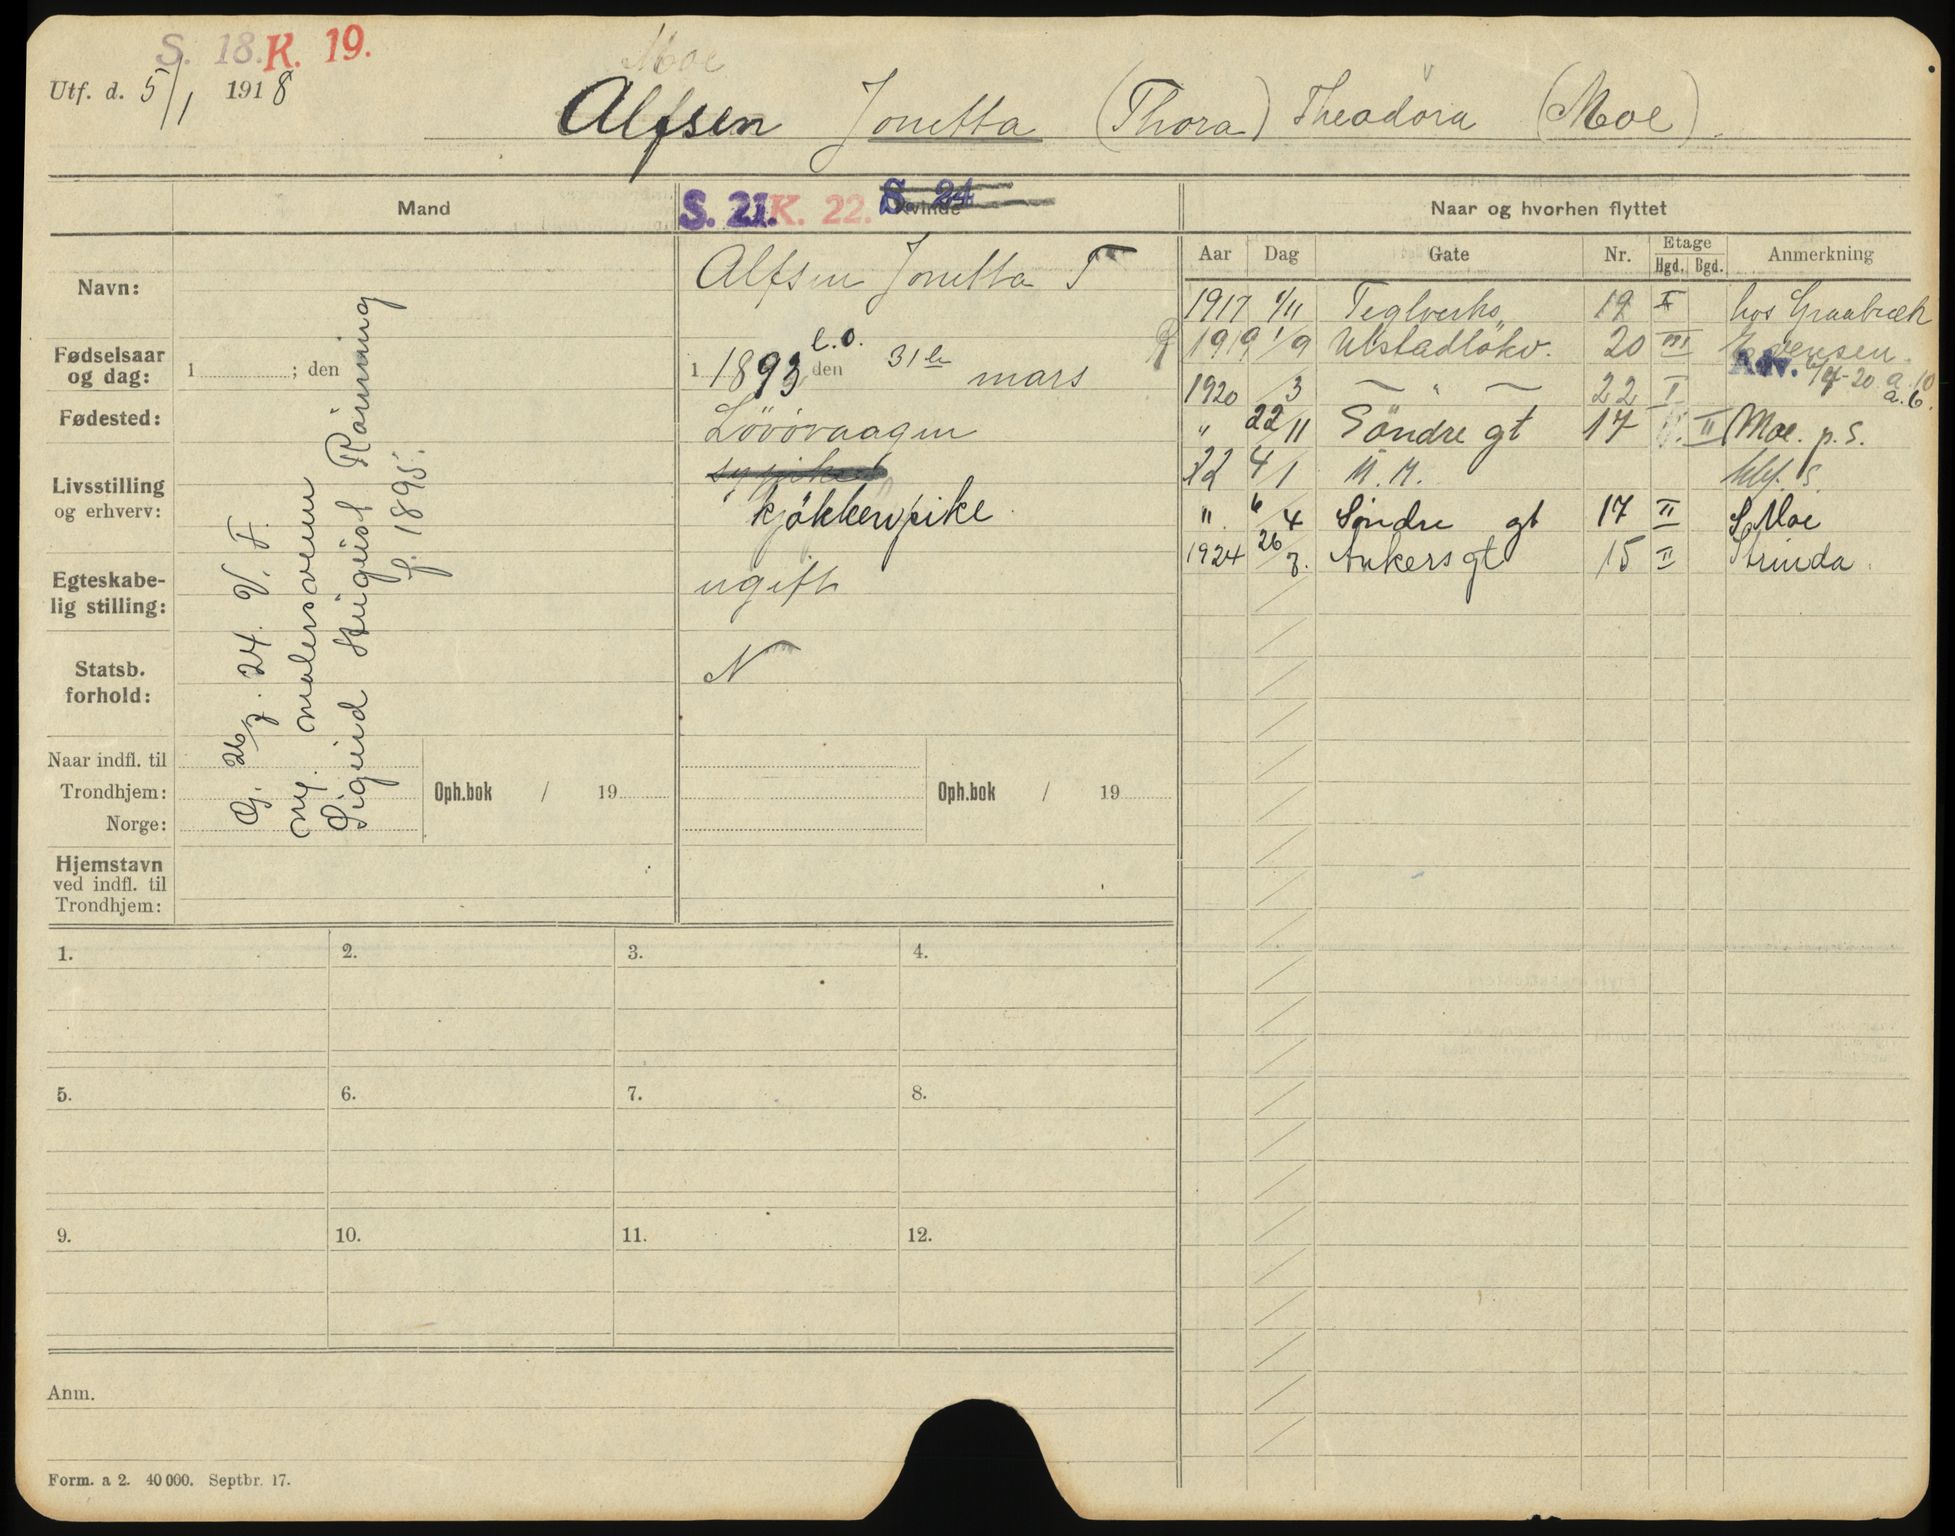 S. 18. K. 19.
Moe
Utf. d. 5/1 1918
Alfsen Jonetta (Thora) Theadora (Moe)
Mand
S. 21. K. 22. S. 24
Kvinde
Naar og hvorhen flyttet
Aar Dag Gate Nr. Etage Anmerkning
Hgd. Bgd.
Navn:
Alfsen Jonetta T
Fødselsaar og dag:
1 ; den
1 1893 den 31te mars
e. o.
Fødested:
Lövövaagen
Livsstilling og erhverv:
kjökkenpike
Egteskabelig stilling:
ugift
Statsb. forhold:
N
Naar indfl. til
Trondhjem:
Norge:
Oph.bok / 19
Oph.bok / 19
Hjemstavn
ved indfl. til
Trondhjem:
G. 26/7. 24. V. F.
m. malersvenn
Sigurd Rönning
f. 1895.
1917 1/11 Teglverks 19 II hos Graabræk
1919 1/9 Ulstadlökv. 20 III Evensen
Adv. -20. a. 10
a. 6.
1920 /3 — " — 22 I
" 22/11 Söndre gt 17 II Moe. p. S.
22 4/1 M. M.
". 6/4 Söndre gt 17 II S. Moe
1924 26/7. Ankers gt 15 II Strinda.
1. 2. 3. 4.
5. 6. 7. 8.
9. 10. 11. 12.
Anm.
Form. a 2. 40 000. Septbr. 17.